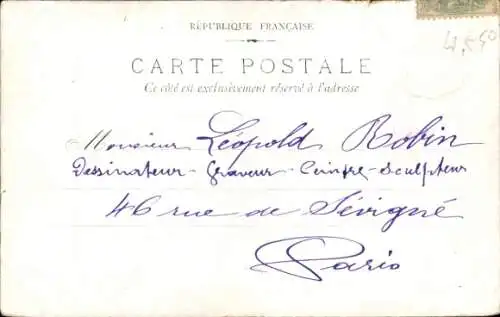 RÉPUBLIQUE FRANÇAISE
4,550
CARTE POSTALE
Ce côté est exclusivement réservé à l'adresse
Monsieur Léopold Robin
Dessinateur - Graveur - Peintre - Sculpteur
46 rue de Sévigné
Paris